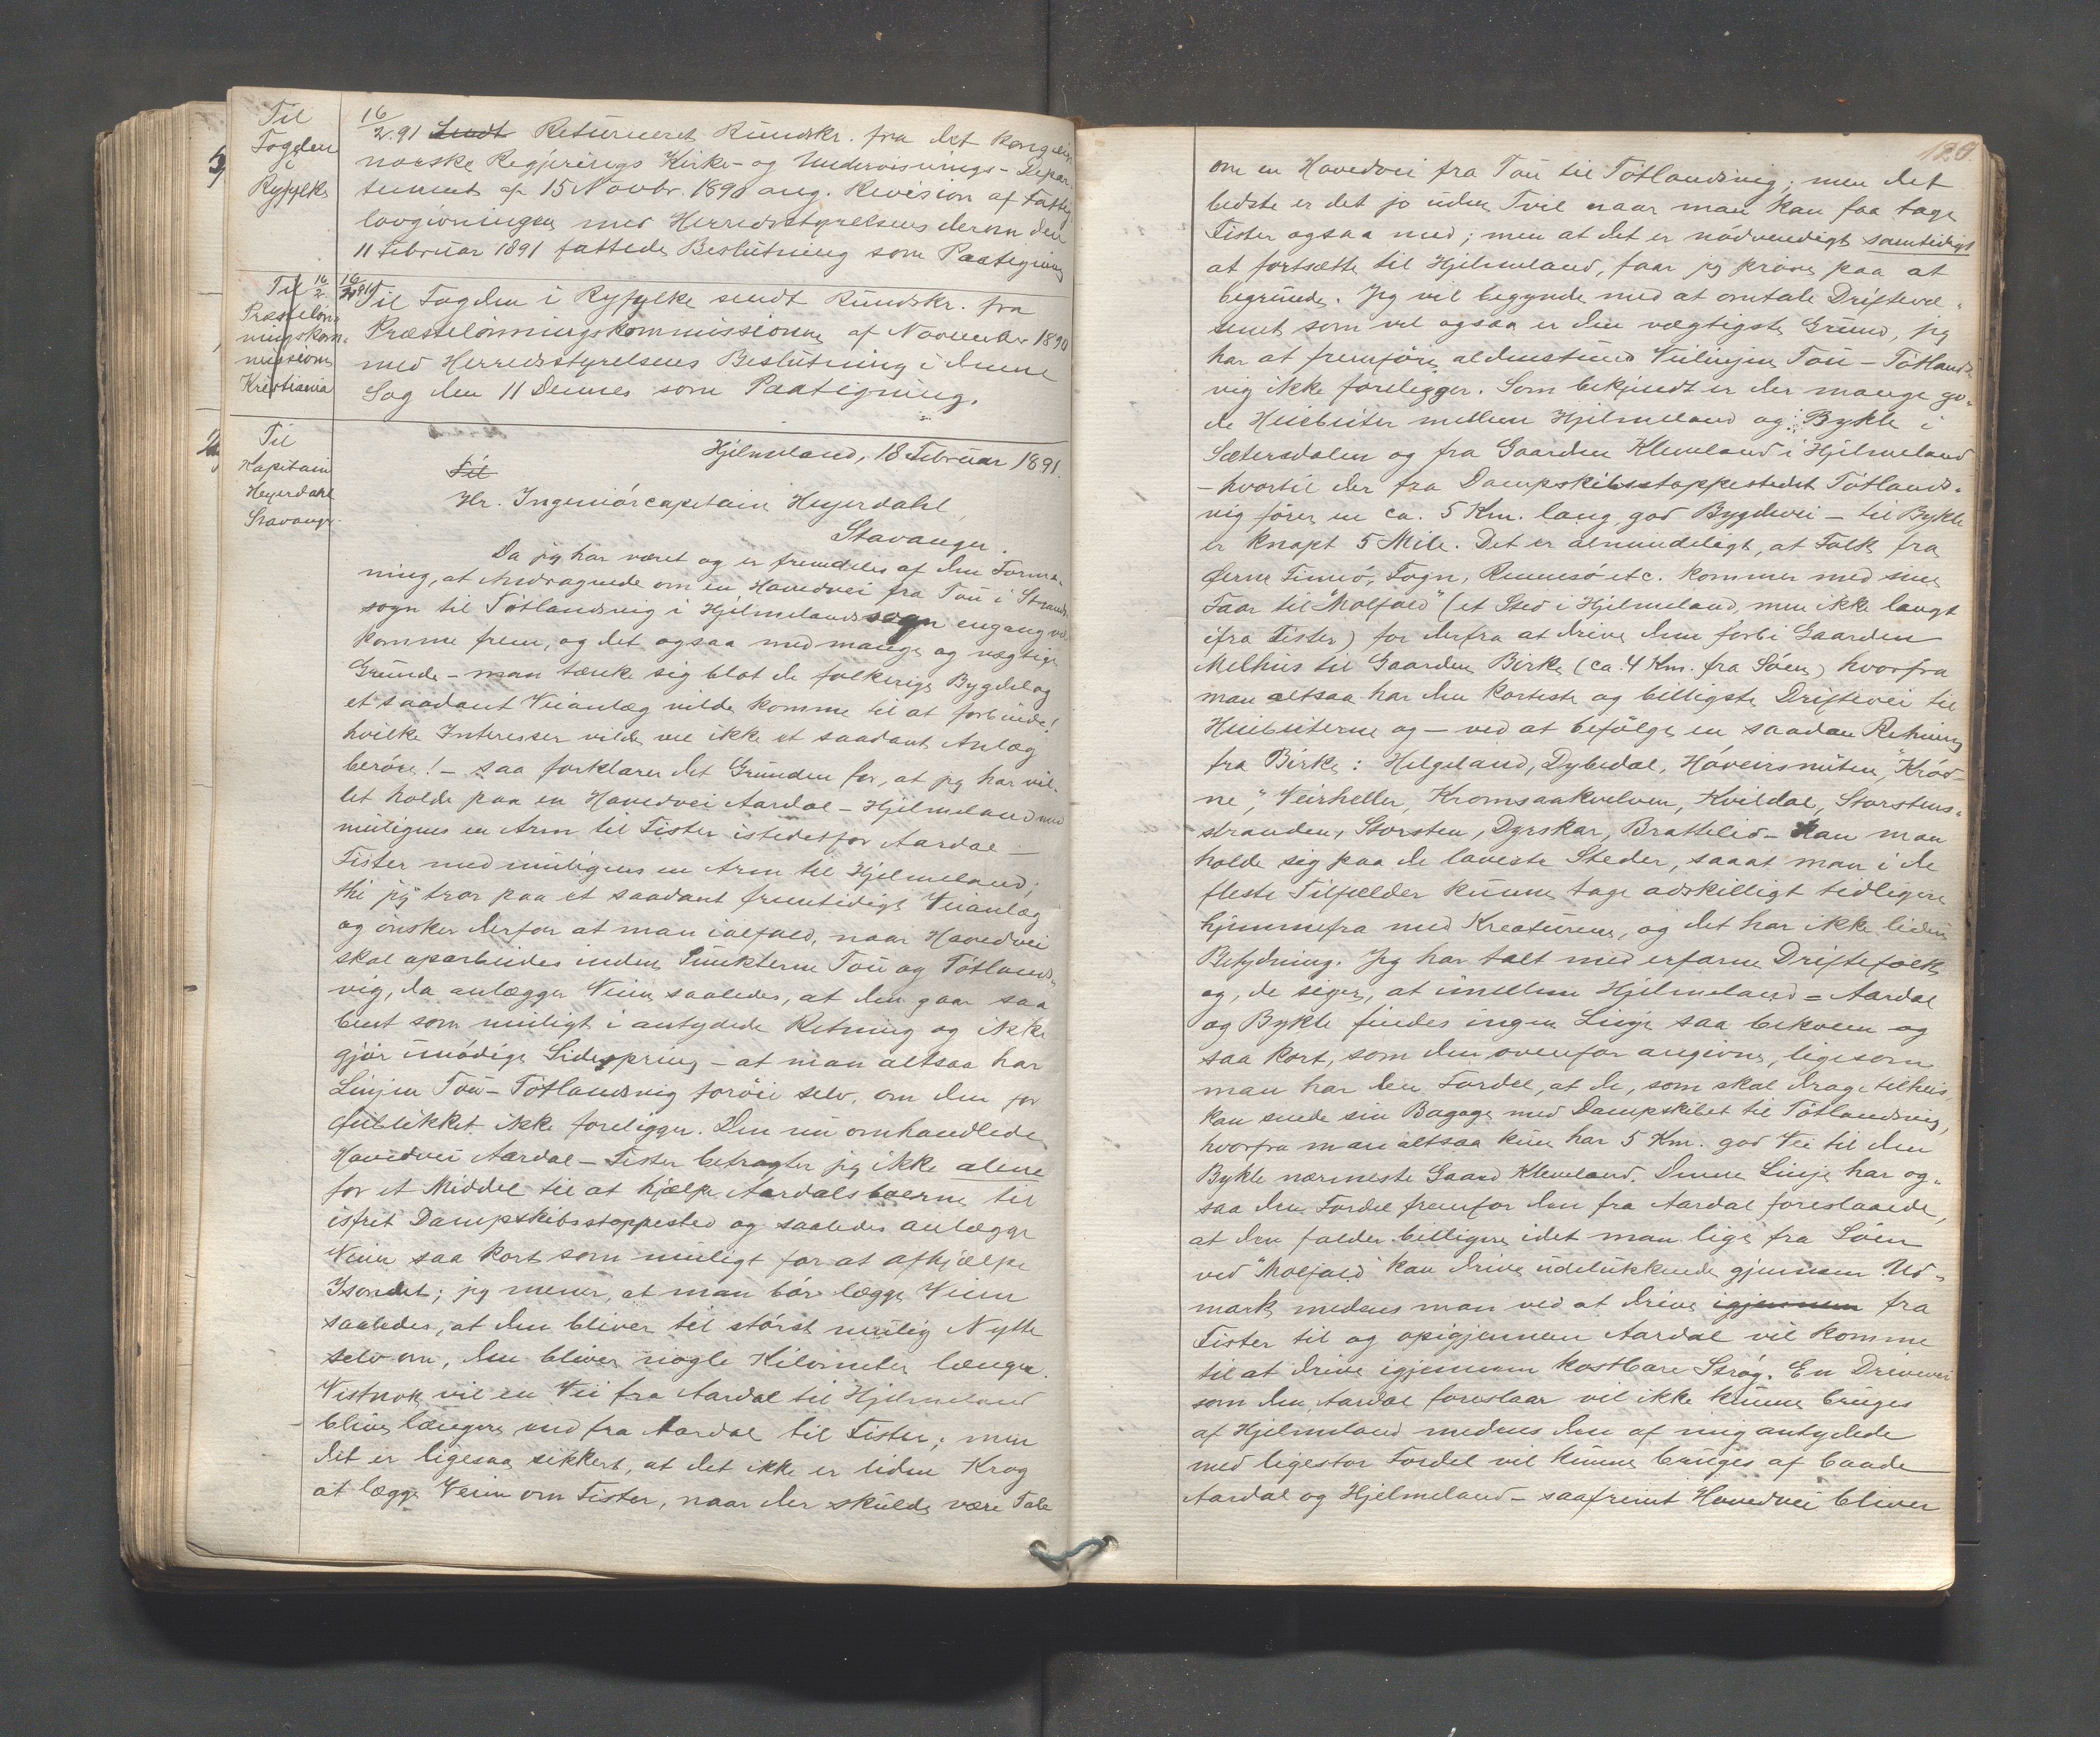 Til
Fogden
i
Ryfylke
16/2.91 Sendt Returneret Rundskr. fra det kongelig
norske Regjerings Kirke- og Undervisnings-Depar-
tement af 15 Novbr. 1890 ang. Revision af Fattig
lovgivningen med Herredsstyrelsens derom den
11 Februar 1891 fattede Beslutning som Paategning
Til 16/2.
Præsteløn-
ningskom-
missionen
Kristiania
16/2 91 Til Fogden i Ryfylke sendt Rundskr. fra
Præstelønningskommissionen af November 1890
med Herredsstyrelsens Beslutning i denne
Sag den 11 Dennes som Paategning.
Til
Kapitain
Heyerdahl
Stavanger.
Hjelmeland, 18 Februar 1891.
Til
Hr. Ingeniørcapitain Heyerdahl
Stavanger.
Da jeg har været og er fremdeles af den Forme-
ning, at Andragende om en Hovedvei fra Tou i Strands
sogn til Tøtlandsvig i Hjelmelands sogn engang vil
komme frem, og det ogsaa med mange og vægtige
Grunde – man tænke sig blot de folkerige Bygdelag
et saadant Veianlæg vilde komme til at forbinde!
hvilke Interesser vilde vel ikke et saadant Anlæg
berøre! – saa forklarer det Grunden for, at jeg har vil-
let holde paa en Hovedvei Aardal – Hjelmeland med
muligens en Arm til Fister istedetfor Aardal –
Fister med muligens en Arm til Hjelmeland;
thi jeg tror paa et saadant fremtidigt Veianlæg
og ønsker derfor at man ialfald, naar Hovedvei
skal oparbeides inden Punkterne Tou og Tøtlands-
vig, da anlægger Veien saaledes, at den gaar saa
bent som muligt i antydede Retning og ikke
gjør unødige Sidespring – at man altsaa har
Linjen Tou – Tøtlandsvig forøie selv, om den for
Øieblikket ikke foreligger. Den nu omhandlede
Hovedvei Aardal – Fister betragter jeg ikke alene
for et Middel til at hjælpe Aardalsboerne til
isfrit Dampskibsstoppested og saaledes anlægge
Veien saa kort som muligt for at afhjælpe
Isondet; jeg mener, at man bør lægge Veien
saaledes, at den bliver til størst mulig Nytte
selv om, den bliver nogle Kilometer længer.
Vistnok vil en Vei fra Aardal til Hjelmeland
blive længere end fra Aardal til Fister; men
det er ligesaa sikkert, at det ikke er liden Krog
at lægge Veien om Fister, naar der skulde være Tale
120.
om en Hovedvei fra Tou til Tøtlandsvig; men det
bedste er det jo uden Tvil naar man kan faa tage
Fister ogsaa med; men at det er nødvendigt samtidigt
at fortsætte til Hjelmeland, faar jeg prøve paa at
begrunde. Jeg vil begynde med at omtale Driftevæ-
senet som vel ogsaa er den vægtigste Grund, jeg
har at fremføre, aldenstund Veilinjen Tou – Tøtlands-
vig ikke foreligger. Som bekjendt er der mange go-
de Heibeiter mellem Hjelmeland og Bykle i
Sætersdalen og fra Gaarden Kleveland i Hjelmeland
– hvortil der fra Dampskibsstoppestedet Tøtlands-
vig fører en ca. 5 Km. lang, god Bygdevei – til Bykle
er knapt 5 Mile. Det er almindeligt, at Folk fra
Øerne Finnø, Fogn, Rennesø etc. kommer med sine
Faar til "Molfald" (et Sted i Hjelmeland, men ikke langt
ifra Fister) for derfra at drive dem forbi Gaarden
Melhus til Gaarden Birke (ca. 4 Km. fra Søen) hvorfra
man altsaa har den korteste og billigste Driftevei til
Heibeiterne og – ved at befølge en saadan Retning
fra Birke: Helgeland, Dybedal, Høveirsnuten, "Krød-
ne", Veirheller, Kromsaakvelven, Kvildal, Storstens-
stranden, Storsten, Dyrskar, Brattelid – kan man
holde sig paa de laveste Steder, saaat man i de
fleste Tilfælder kunne tage adskilligt tidligere
hjemmefra med Kreaturene, og det har ikke liden
Betydning. Jeg har talt med erfarne Driftefolk
og, de siger, at imellem Hjelmeland = Aardal
og Bykle findes ingen Linje saa bekvem og
saa kort, som den ovenfor angivne, ligesom
man har den Fordel, at de, som skal drage tilheis,
kan sende sin Bagage med Dampskibet til Tøtlandsvig,
hvorfra man altsaa kun har 5 Km. god Vei til den
Bykle nærmeste Gaard Kleveland. Denne Linje har og-
saa den Fordel fremfor den fra Aardal foreslaaede,
at den falder billigere idet man lige fra Søen
ved "Molfald" kan drive udelukkende gjennem Ud-
mark, medens man ved at drive igjennem fra
Fister til og opigjennem Aardal vil komme
til at drive igjennem kostbare Strøg. En Drivevei
som den, Aardal foreslaar vil ikke kunne bruges
af Hjelmeland medens den af mig antydede
med ligestor Fordel vil kunne bruges af baade
Aardal og Hjelmeland – saafremt Hovedvei bliver